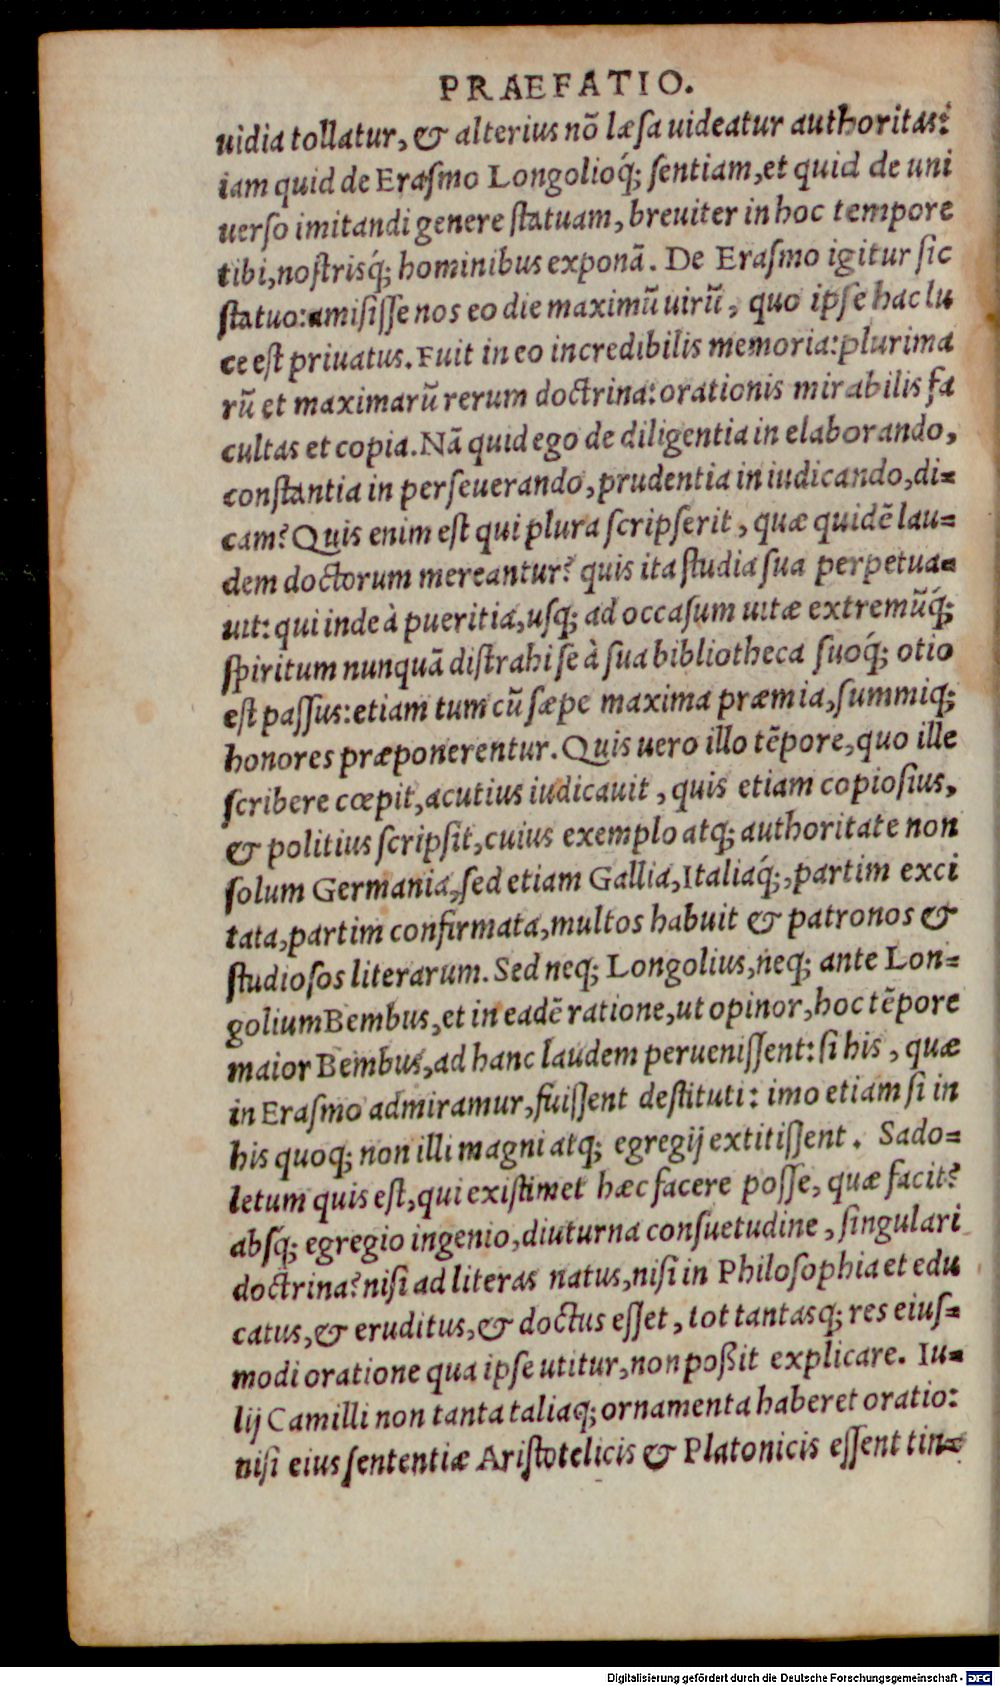 PRAEFATIO.
uidia tollatur, & alterius nõ læſa uideatur authoritas:
iam quid de Eraſmo Longolioq́; ſentiam, et quid de uni
uerſo imitandi genere ſtatuam, breuiter in hoc tempore
tibi, noſtrisq́; hominibus exponã. De Eraſmo igitur ſic
ſtatuo: amiſiſſe nos eo die maximũ uirũ, quo ipſe hac lu
ce eſt priuatus. Fuit in eo incredibilis memoria: plurima
rũ et maximarũ rerum doctrina: orationis mirabilis fa
cultas et copia. Nã quid ego de diligentia in elaborando,
conſtantia in perſeuerando, prudentia in iudicando, di-
cam? Quis enim eſt qui plura ſcripſerit, quæ quidẽ lau-
dem doctorum mereantur? quis ita ſtudia ſua perpetua-
uit: qui inde à pueritia, uſq; ad occaſum uitæ extremũq́;
ſpiritum nunquã diſtrahi ſe à ſua bibliotheca ſuoq́; otio
eſt paſſus: etiam tum cũ ſæpe maxima præmia, ſummiq;
honores præponerentur. Quis uero illo tẽpore, quo ille
ſcribere cœpit, acutius iudicauit, quis etiam copioſius,
& politius ſcripſit, cuius exemplo atq; authoritate non
ſolum Germania, ſed etiam Gallia, Italiaq́;, partim exci
tata, partim confirmata, multos habuit & patronos &
ſtudioſos literarum. Sed neq; Longolius, neq; ante Lon-
golium Bembus, et in eadẽ ratione, ut opinor, hoc tẽpore
maior Bembus, ad hanc laudem perueniſſent: ſi his, quæ
in Eraſmo admiramur, fuiſſent deſtituti: imo etiam ſi in
his quoq; non illi magni atq; egregij extitiſſent. Sado-
letum quis eſt, qui exiſtimet hæc facere poſſe, quæ facit?
abſq́; egregio ingenio, diuturna conſuetudine, ſingulari
doctrina? niſi ad literas natus, niſi in Philoſophia et edu
catus, & eruditus, & doctus eſſet, tot tantasq; res eiuſ-
modi oratione qua ipſe utitur, non poßit explicare. Iu-
lij Camilli non tanta taliaq; ornamenta haberet oratio:
niſi eius ſententiæ Ariſtotelicis & Platonicis eſſent tin-
Digitalisierung gefördert durch die Deutsche Forschungsgemeinschaft - DFG